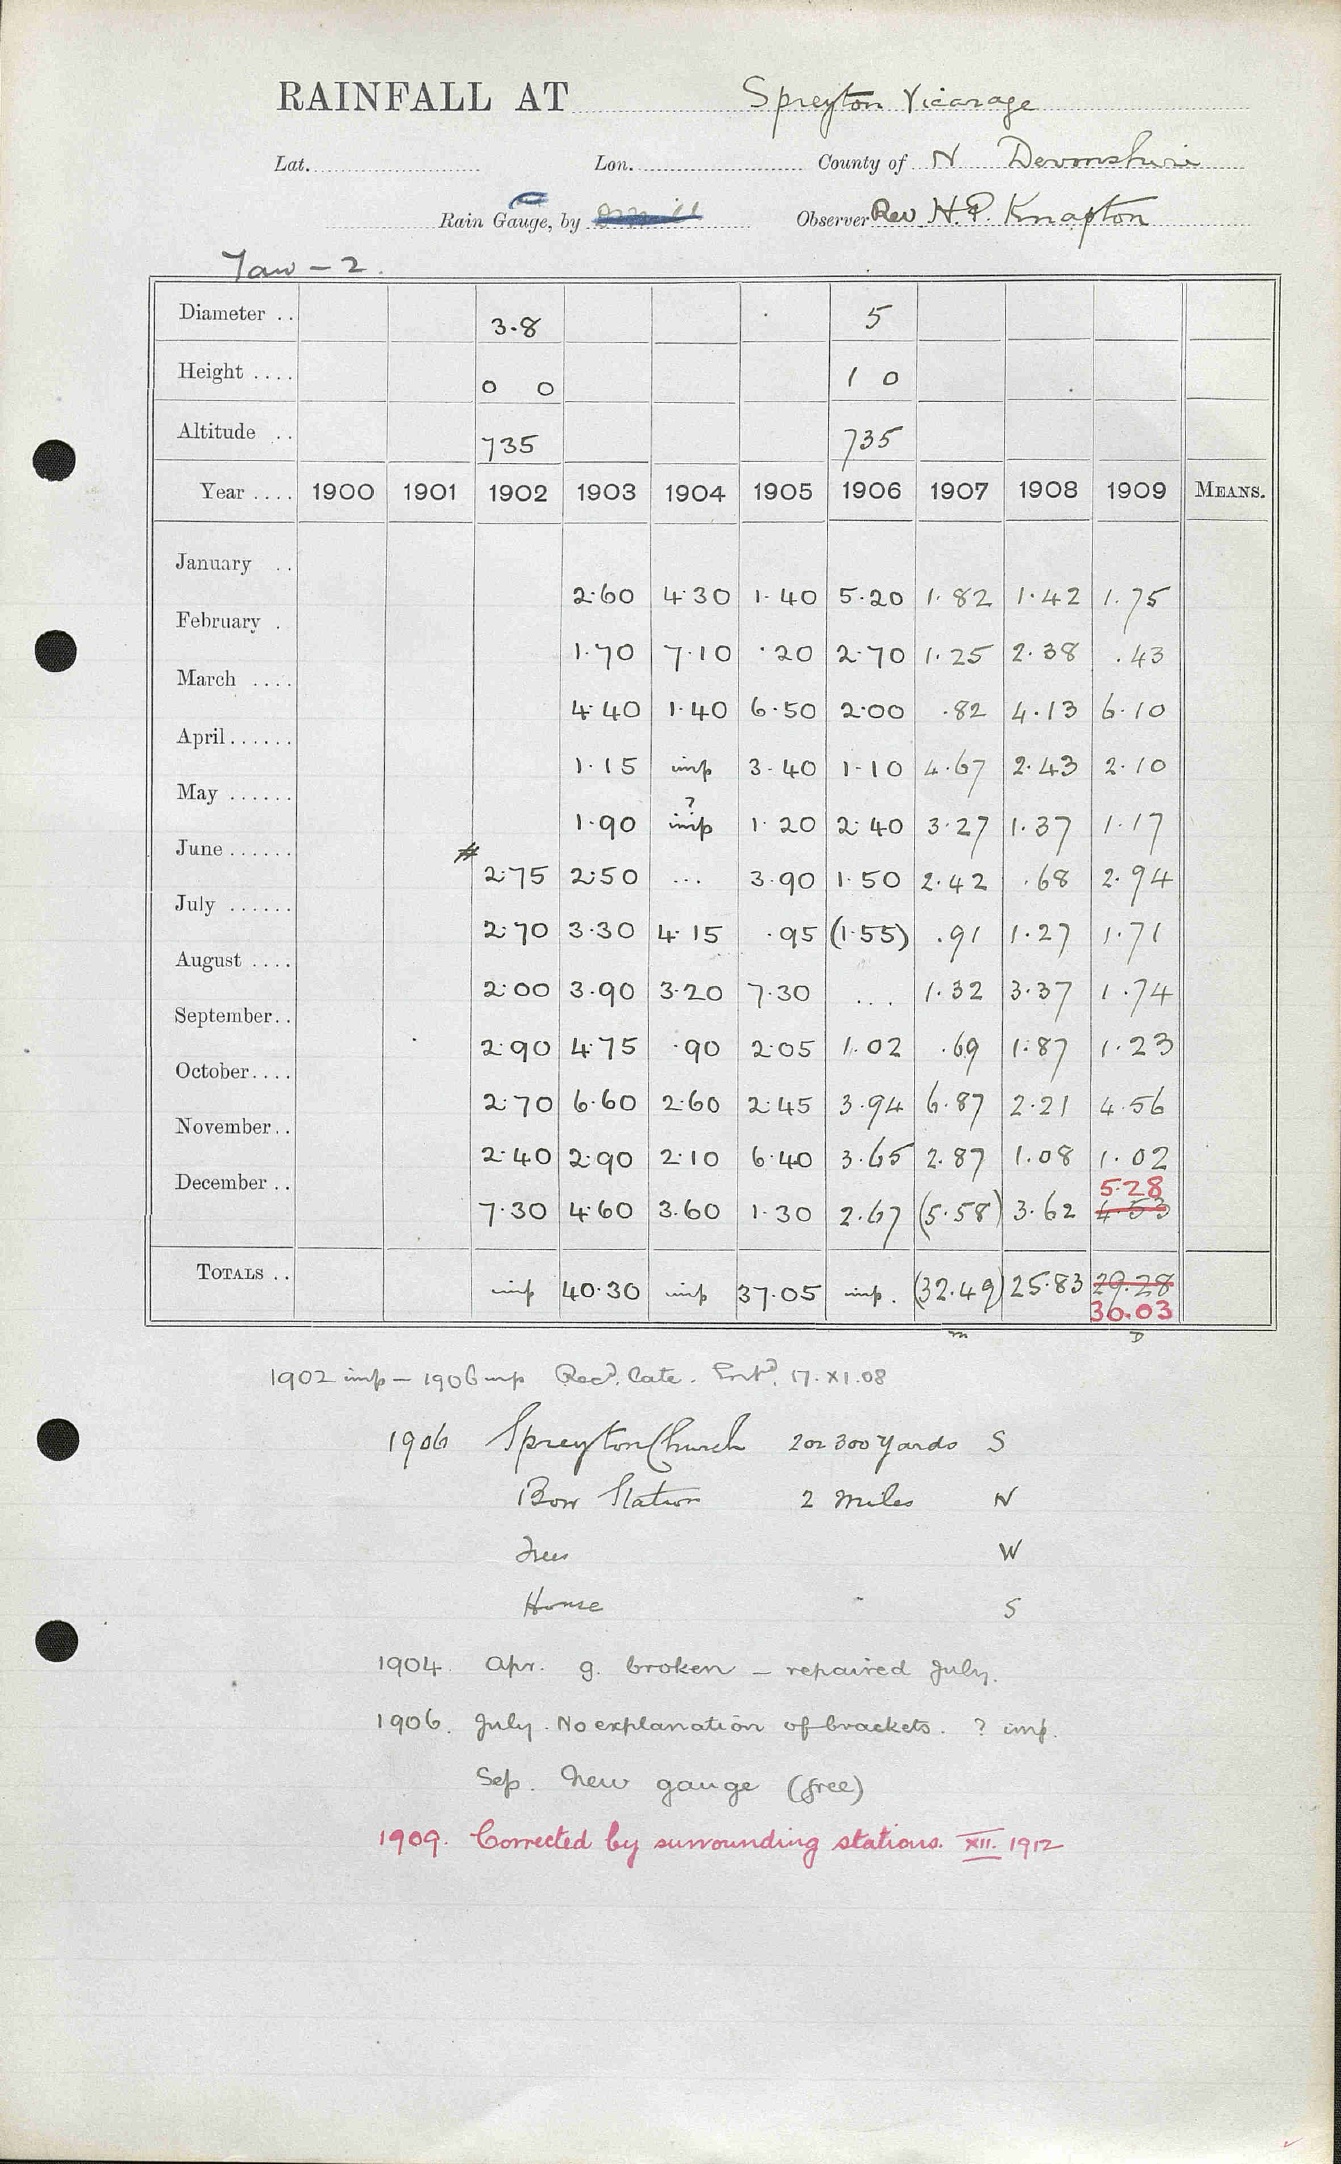 RAINFALL AT Spreyton Vicarage
Lat. Lon. County of N Devonshire
Rain Gauge, by Observer Rev H. P. Knapton
Taw - 2.
Diameter .. 3.8 5
Height .... 0 0 1 0
Altitude .. 735 735
Year .... 1900 1901 1902 1903 1904 1905 1906 1907 1908 1909 MEANS.
January .. 2.60 4.30 1.40 5.20 1.82 1.42 1.75
February . 1.70 7.10 .20 2.70 1.25 2.38 .43
March .... 4.40 1.40 6.50 2.00 .82 4.13 6.10
April...... 1.15 imp 3.40 1.10 4.67 2.43 2.10
May ...... 1.90 ? imp 1.20 2.40 3.27 1.37 1.17
June...... # 2.75 2.50 ... 3.90 1.50 2.42 .68 2.94
July ...... 2.70 3.30 4.15 .95 (1.55) .91 1.27 1.71
August .... 2.00 3.90 3.20 7.30 ... 1.32 3.37 1.74
September.. 2.90 4.75 .90 2.05 1.02 .69 1.87 1.23
October.... 2.70 6.60 2.60 2.45 3.94 6.87 2.21 4.56
November.. 2.40 2.90 2.10 6.40 3.65 2.87 1.08 1.02
5.28
December .. 7.30 4.60 3.60 1.30 2.67 (5.58) 3.62 4.53
TOTALS .. imp 40.30 imp 37.05 imp. (32.49) 25.83 29.28
30.03
m D
1902 imp - 1906 imp Recd. late. Entd. 17.XI.08
1906 Spreyton Church 2 or 300 Yards S
Bow Station 2 Miles N
Trees W
House S
1904. Apr. g. broken - repaired July.
1906. July. No explanation of brackets. ? imp.
Sep. New gauge (free)
1909. Corrected by surrounding stations. XII. 1912